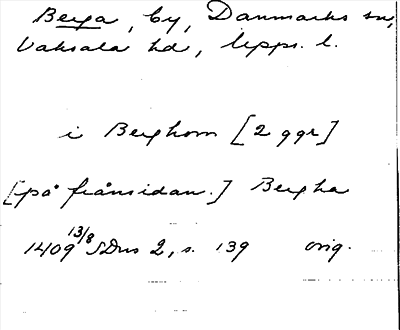 Berga, by, Danmarks sn,
Vaksala hd, Upps. l.
i Berghom [2 ggr]
[på frånsidan.] Bergha
1409 13/8 SDns 2, s. 139 orig.